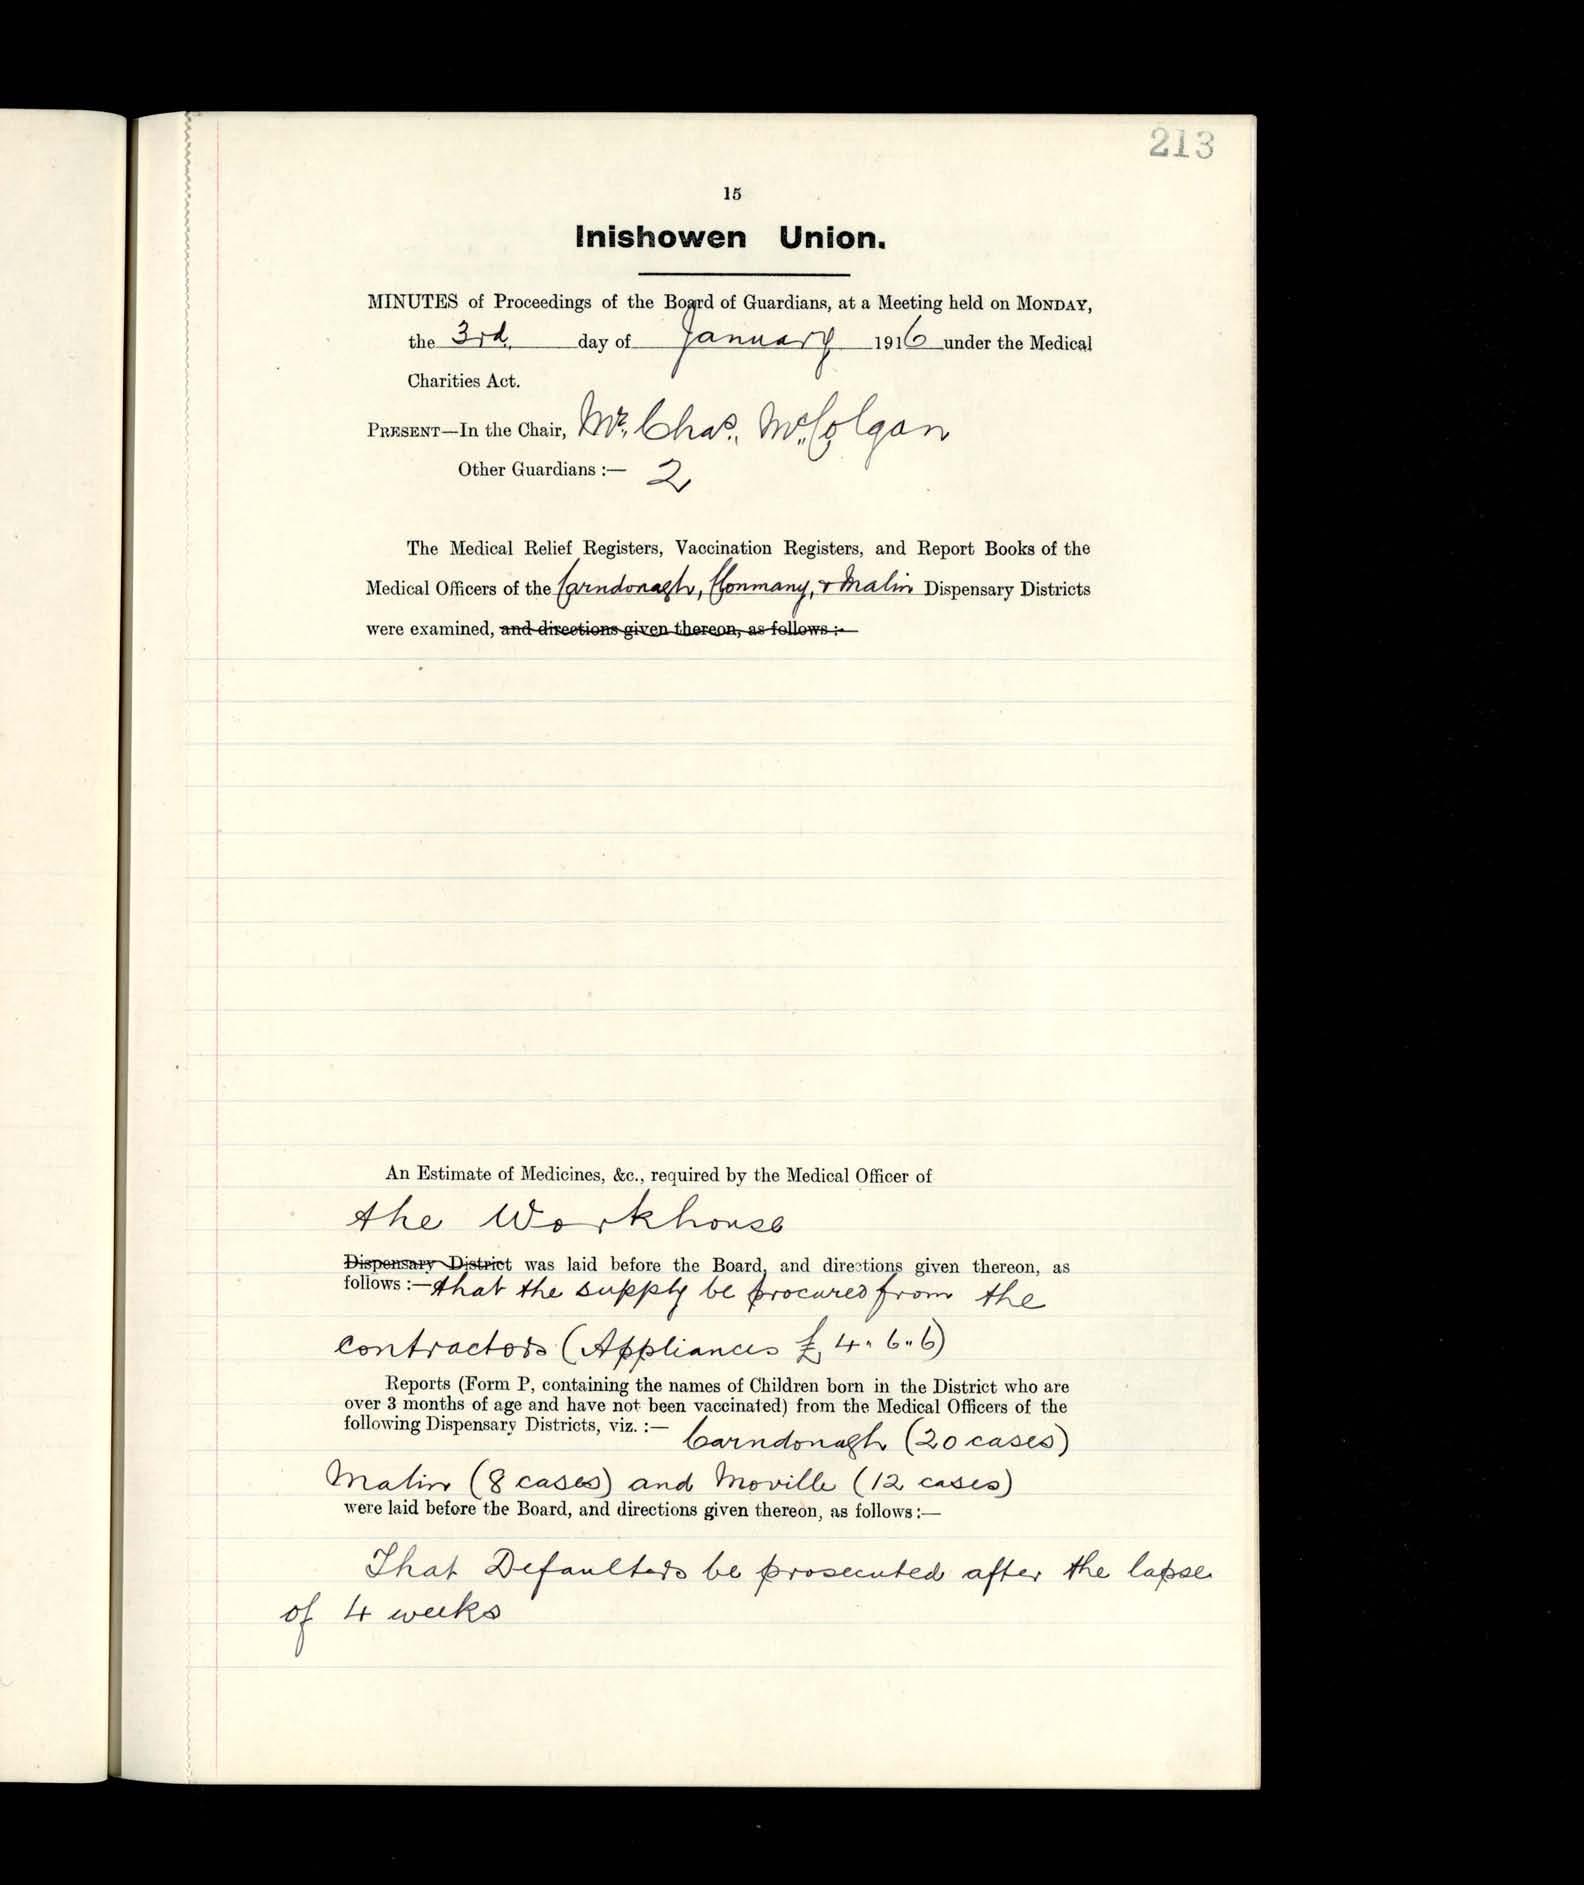 213
15
Inishowen Union.
MINUTES of Proceedings of the Board of Guardians, at a Meeting held on MONDAY,
the 3rd. day of January 1916 under the Medical
Charities Act.
PRESENT—In the Chair, Mr. Chas. McColgan
Other Guardians :— 2
The Medical Relief Registers, Vaccination Registers, and Report Books of the
Medical Officers of the Carndonagh, Clonmany, & Malin Dispensary Districts
were examined, and directions given thereon, as follows :-
An Estimate of Medicines, &c., required by the Medical Officer of
the Workhouse
Dispensary District was laid before the Board, and directions given thereon, as
follows :—that the supply be procured from the
contractors (Appliances £4.6.6)
Reports (Form P, containing the names of Children born in the District who are
over 3 months of age and have not been vaccinated) from the Medical Officers of the
following Dispensary Districts, viz. :— Carndonagh (20 cases)
Malin (8 cases) and Moville (12 cases)
were laid before the Board, and directions given thereon, as follows :—
That Defaulters be prosecuted after the lapse
of 4 weeks